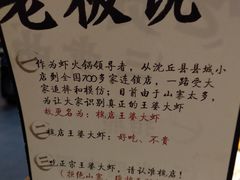 老板说
一 作为虾火锅领导者，从沈丘县县城小
店到全国700多家连锁店，一路受大
家追捧和模仿；目前由于山寨太多，
为让大家识别真正的王婆大虾
故更名为：槟店王婆大虾
二 槟店王婆大虾：好吃、不贵
三 吃正宗王婆大虾，请认准槟店！
（拒绝山寨